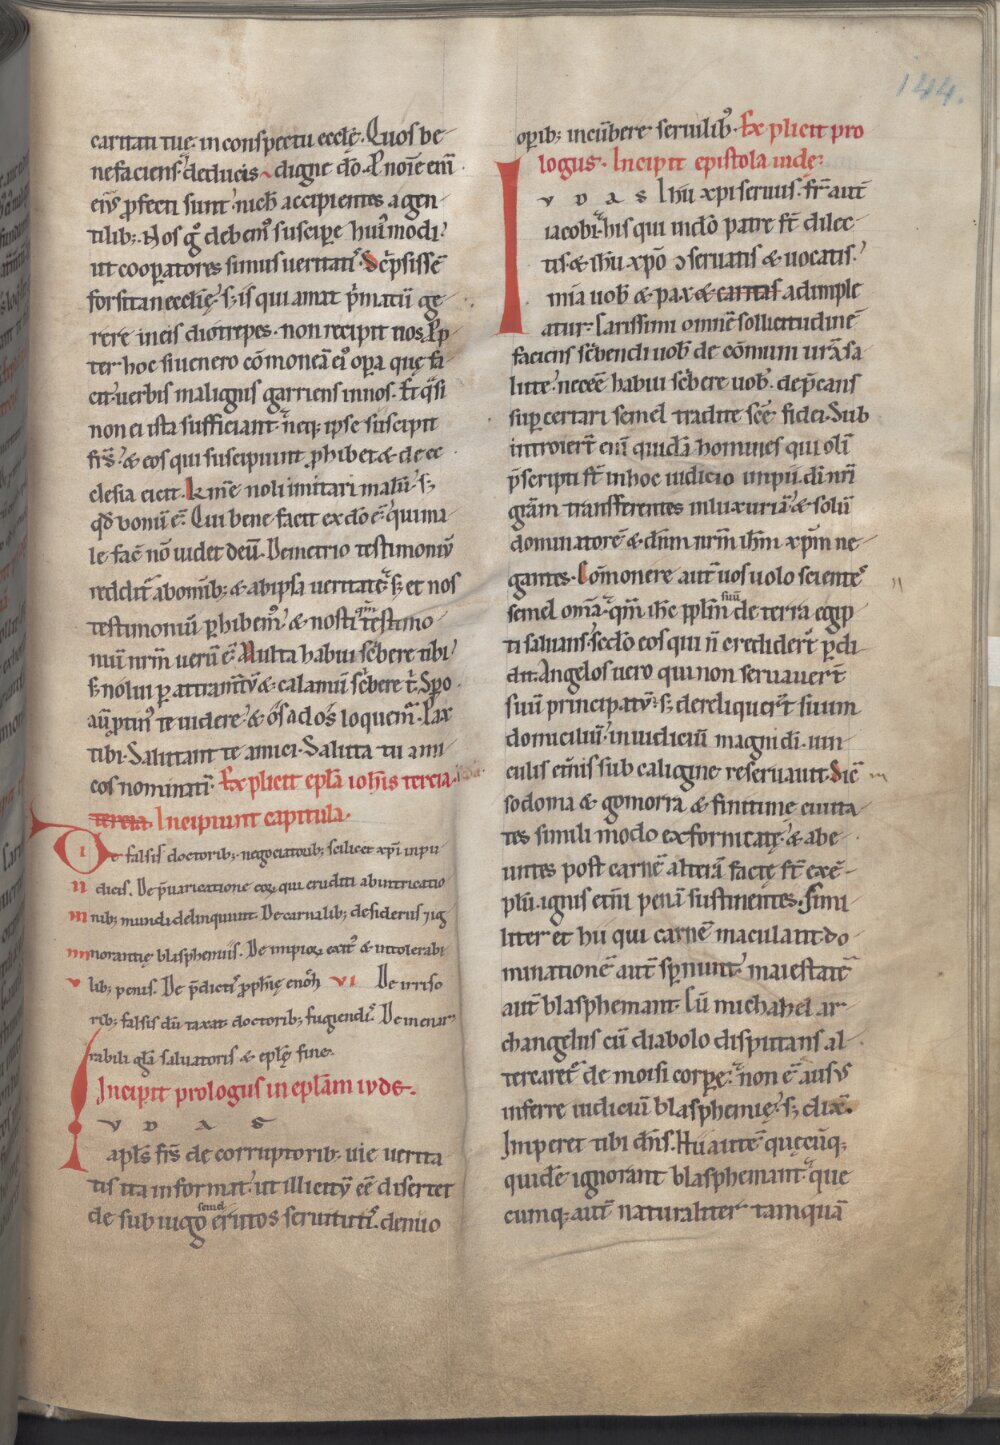 144.
caritati tuę. in conspectu ecclę. Quos be
nefaciens deducis digne dō. P noīe eni
ei᾽ pfecti sunt nich accipientes a gen
tilib;. Nos gͦ debem᾽ suscipe hui᾽modi
ut cooperatores simus ueritati᾽. Scripsissē
forsitan ecclię. s; is qui amat pmatū ge
rere in eis diotrepes. non recipit nos. Pp
ter hoc si uenero cōmoneā ei᾽ opa quę fa
cit. uerbis malignis garriens in nos. Et qsi
non ei ista sufficiant. neq; ipse suscipit
frs. & eos qui suscipiunt phibet & de ec
clesia eicit. Kme noli imitari malū. s;
qd bonū ē. Qui bene facit ex dō ē. qui ma
le fac nō uidet deū. Demetrio testimoniū
reddit᾽ ab omib;. & ab ipsa ueritate. s; et nos
testimoniū phibem᾽. & nosti qm testimo
niū nrm uerū ē. Multa habui scbere tibi
s; nolui p attramtū & calamū scbere t. Spo
aū ptin᾽ te uidere. & os ad os loquem᾽. Pax
tibi. Salutant te amici. Saluta tu ami
cos nominati᾽. Explicit epla iohis tercia.
tercia. Incipiunt capitula.
I De falsis doctorib; negociatorib; scilicet xpi inpu
II dicis. De puaricatione eoꝝ qui eruditi ab intricatio
III nib; mundi delinquunt. De carnalib; desideriis ⁊ ig
IIII norantię blasphemiis. De impioꝝ exit᾽ & intolerabi
V lib; penis. De pdicti᾽ pphię enoh VI De irriso
rib; falsis dū taxat doctorib; fugiendi᾽. De menar
rabili gla saluatoris & eplę fine.
Incipit prologus in eplam iude.
IVDAS
apls frs de corruptorib; uie uerita
tis ita informat. ut illicitū eē disertet
de sub iugo semel erutos seruituti᾽. denuo
opib; incūbere seruilib᾽. Explicit pro
logus. Incipit epistola iudę.
IVDAS Ihu xpi seruus. fr aut
iacobi. his qui in dō patre st dilec
tis. & ihu xpō ɔseruatis & uocatis.
mia uob & pax & caritas adimple
atur. Carissimi omnē sollicitudinē
faciens scbendi uob de cōmuni urā sa
lute. necēē habui scbere uob. depcans
sup certari semel tradite scē fidei. Sub
introiert eni quidā homines qui olī
pscripti st in hoc iudicio impii. di nri
gram transferentes in luxuriā. & solū
dominatorē & dnm nrm ihm xpm ne
gantes. Cōmonere aut uos uolo scientes
semel omia. qm ihc pplm suū de terra egip
ti saluans. secdo eos qui n crediderт pdi
dit. Angelos uero qui non seruauert
suū principatū. s; dereliquert suum
domiciliū. in iudiciū magni di. uin
culis etnis sub caligine reseruauit. Sic
sodoma & gomorra & finitimę ciuita
tes simili modo exfornicatę. & abe
untes post carnē alterā factę st exē
plū. ignis etni penā sustinentes. Simi
liter et hii qui carnē maculant. do
minationē aut spnunt. maiestatē
aut blasphemant. Cū michahel ar
changelus cū diabolo disputans al
tercaret de moisi corpe. non ē ausus
inferre iudiciū blasphemię. s; dix.
Imperet tibi dns. Hii autē quęcūq;
quidē ignorant blasphemant. que
cumq; aut naturaliter tamquā